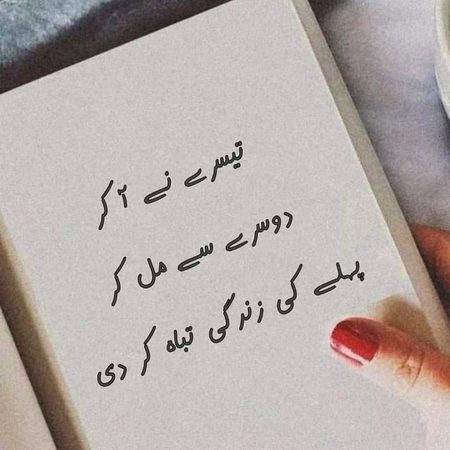 تیسرے نے آ کر
دوسرے سے مل کر
پہلے کی زندگی تباہ کر دی